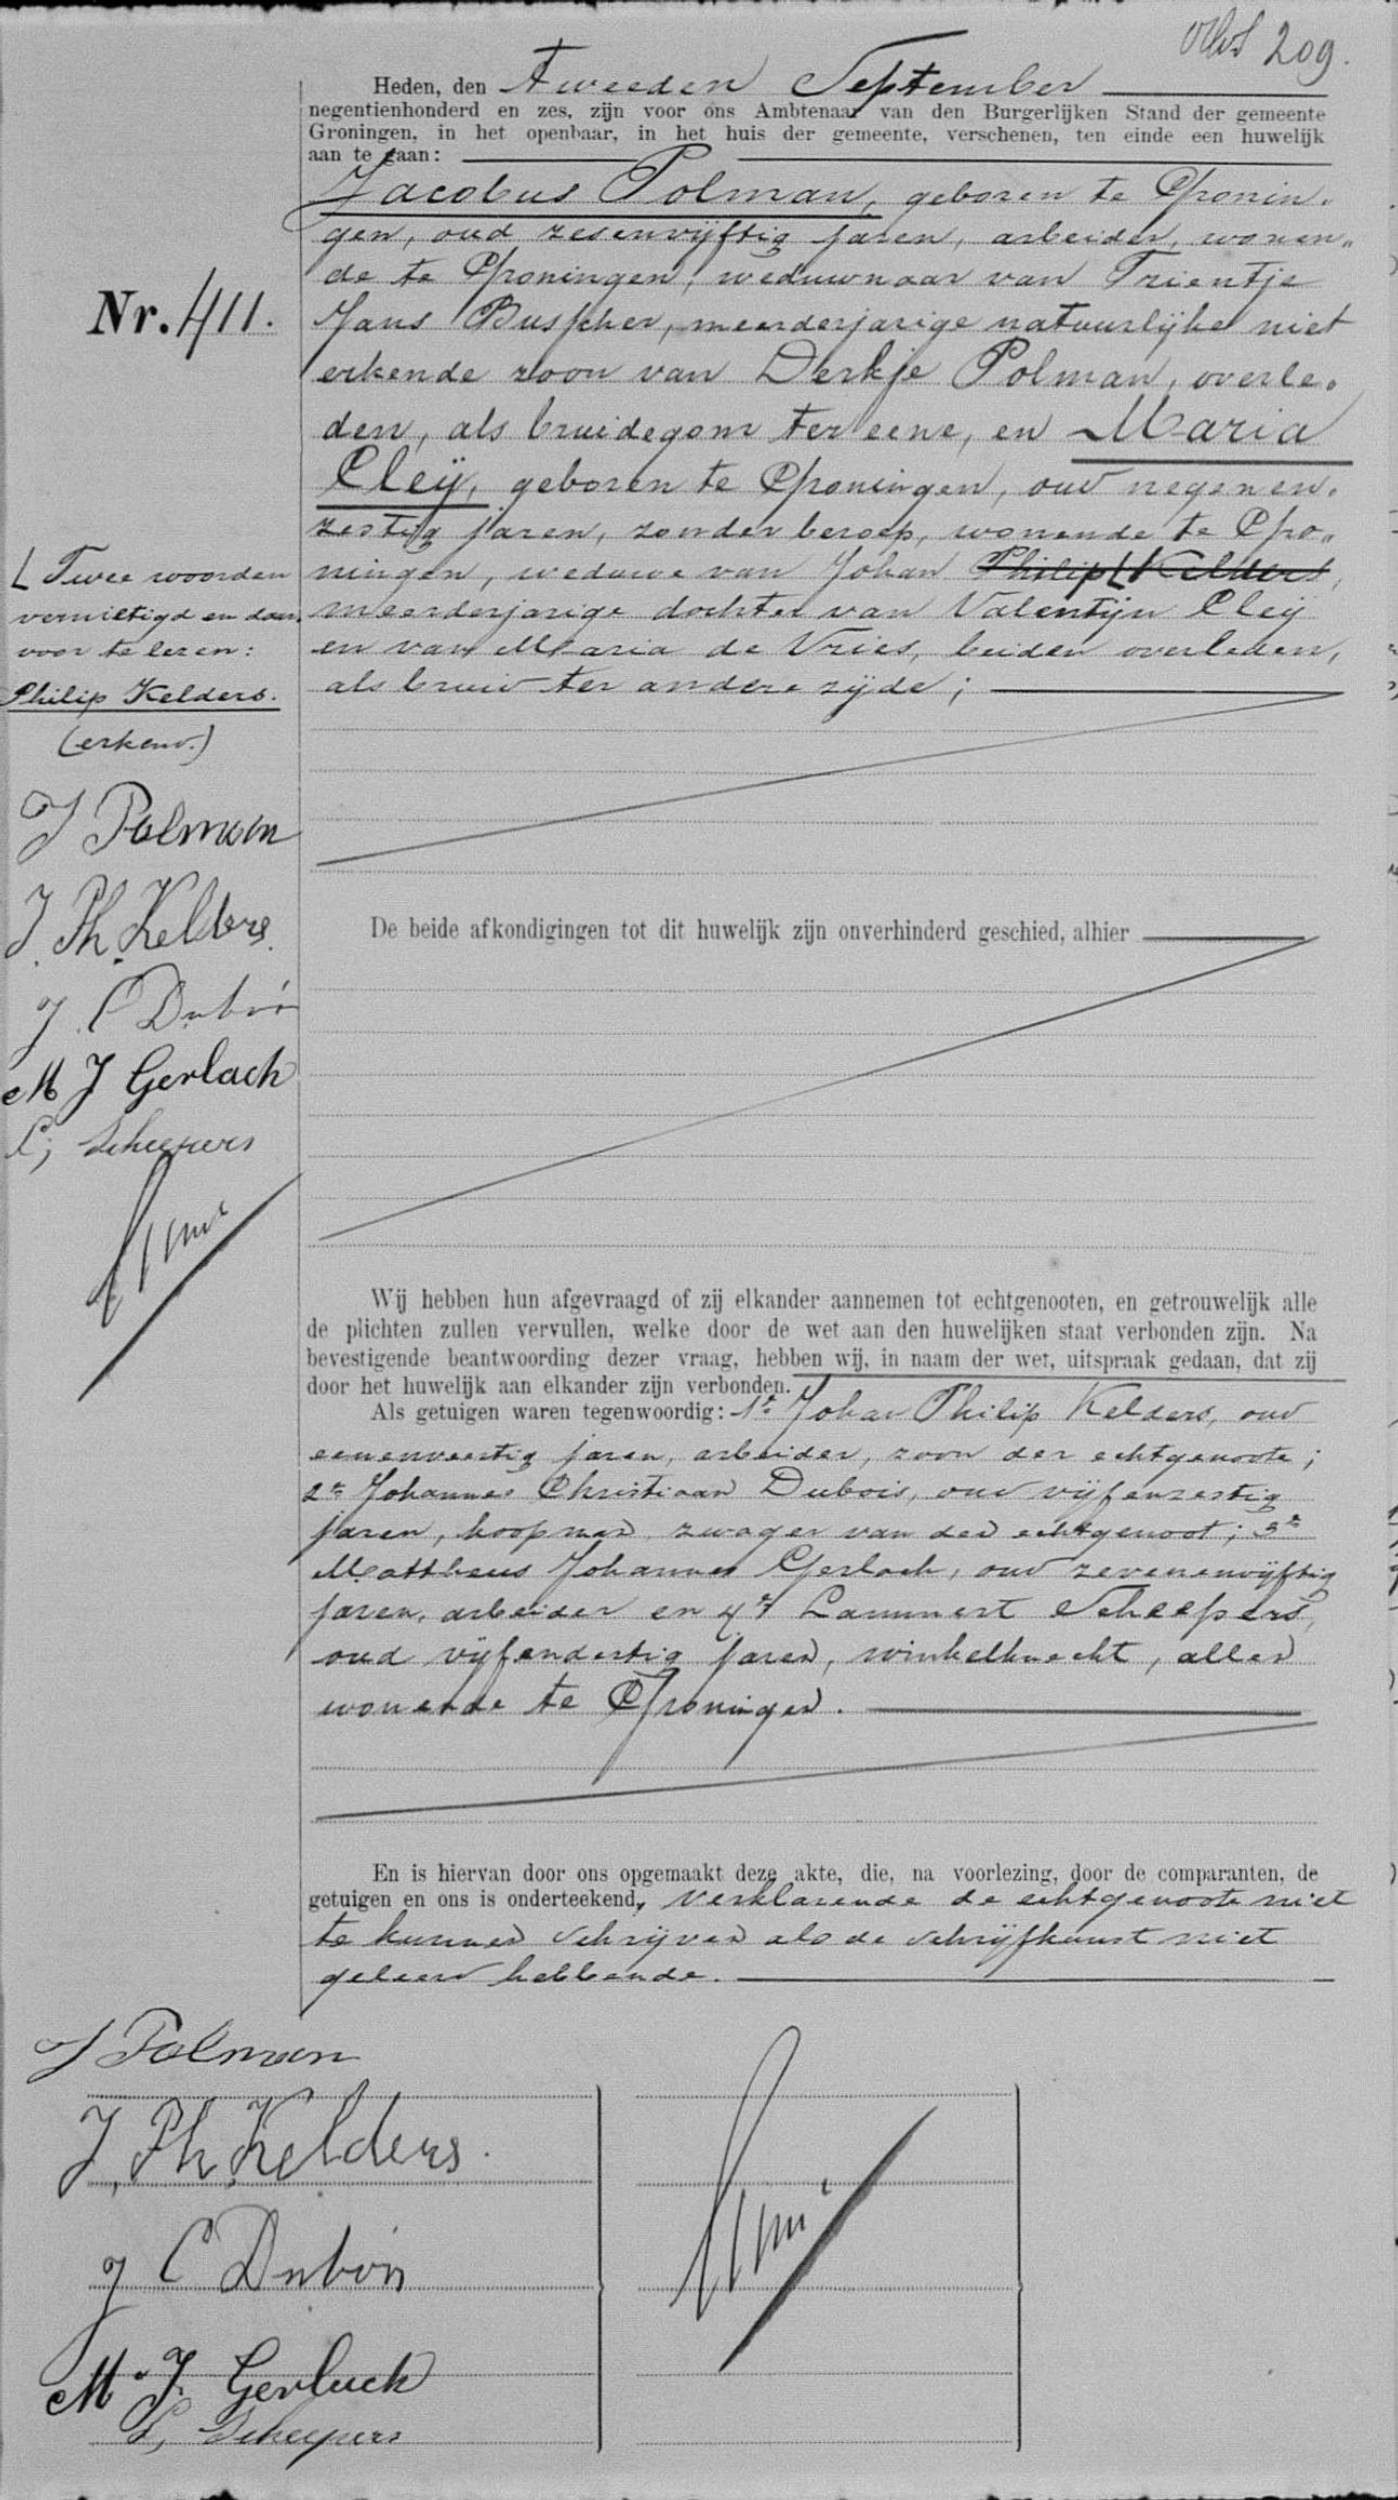 209.
Heden, den Tweeden September
negentienhonderd en zes, zijn voor ons Ambtenaar van den Burgerlijken Stand der gemeente
Groningen, in het openbaar, in het huis der gemeente, verschenen, ten einde een huwelijk
aan te gaan:
Jacobus Polman, geboren te Gronin„
gen, oud zesenvijftig jaren, arbeider, wonen„
de te Groningen, weduwnaar van Trientje
Nr. 411.
Hans Busscher, meerderjarige natuurlijke niet
erkende zoon van Derkje Polman, overle„
den, als bruidegom ter eene, en Maria
Cleÿ, geboren te Groningen, oud negenen„
zestig jaren, zonder beroep, wonende te Gro„
ningen, weduwe van Johan Philip Kelders,
meerderjarige dochter van Valentijn Cleÿ
en van Maria de Vries, beiden overleden,
als bruid ter andere zijde;
Twee woorden
vernietigd en daar„
voor te lezen:
Philip Kelders.
(erkend.)
J Polman
J. Ph. Kelders
J. C Dubois
M J Gerlach
L, Scheepers
De beide afkondigingen tot dit huwelijk zijn onverhinderd geschied, alhier
Wij hebben hun afgevraagd of zij elkander aannemen tot echtgenooten, en getrouwelijk alle
de plichten zullen vervullen, welke door de wet aan den huwelijken staat verbonden zijn. Na
bevestigende beantwoording dezer vraag, hebben wij, in naam der wet, uitspraak gedaan, dat zij
door het huwelijk aan elkander zijn verbonden.
Als getuigen waren tegenwoordig: 1e Johan Philip Kelders, oud
eenenveertig jaren, arbeider, zoon der echtgenoote;
2e Johannes Christiaan Dubois, oud vijfenzestig
jaren, koopman, zwager van den echtgenoot; 3e
Mattheus Johannes Gerlach, oud zevenenvijftig
jaren, arbeider en 4e Lammert Scheepers,
oud vijfendertig jaren, winkelknecht, allen
wonende te Groningen.
En is hiervan door ons opgemaakt deze akte, die, na voorlezing, door de comparanten, de
getuigen en ons is onderteekend, verklarende de echtgenoote niet
te kunnen schrijven als de schrijfkunst niet
geleerd hebbende.
J Polman
J. Ph. Kelders.
J C Dubois
M. J. Gerlach
L, Scheepers